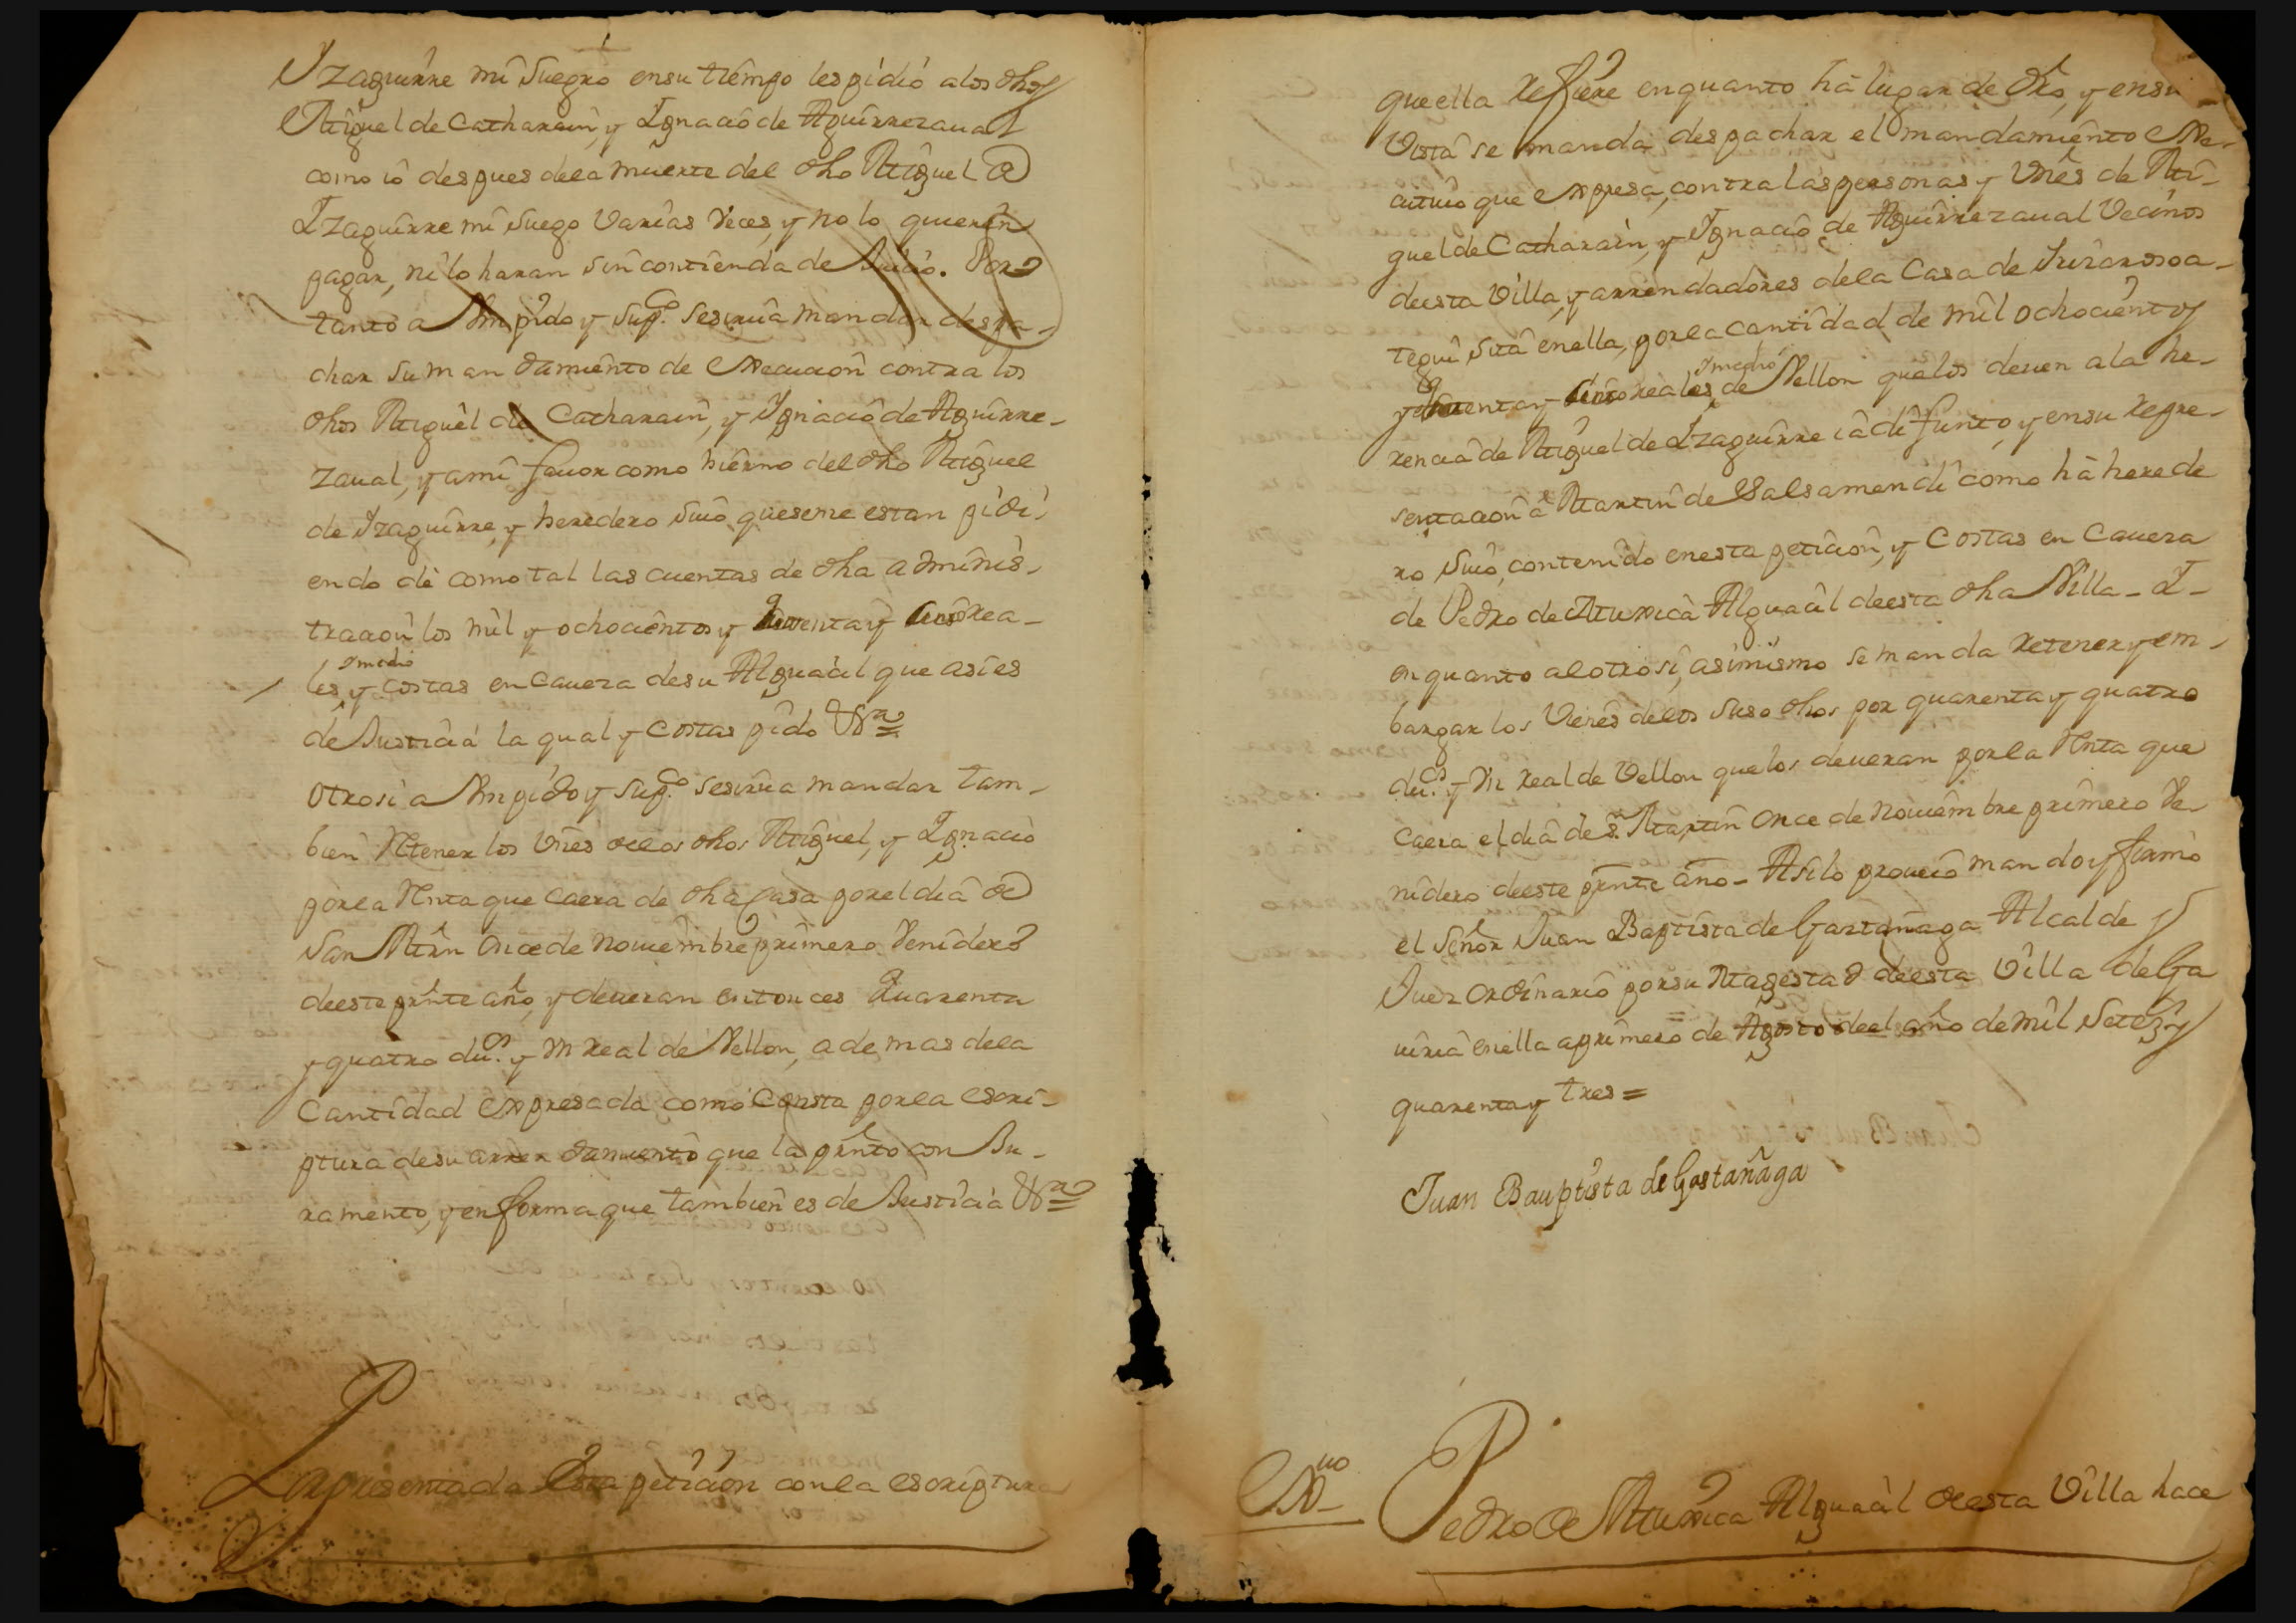 Yzaguirre mi Suegro en su tiempo les pidió a los dhos
Miguel de Catharain, y Ignacio de Aguirrezaual
como io despues de la muerte del dho Miguel de
Izaguirre mi suego varias veces, y no lo quieren
pagar, ni lo haran sin contienda de Juicio. Por
tanto a Vm pido y supco se sirua mandar despa-
char su mandamiento de execucion contra los
dhos Miguel de Catharain, y Ignacio de Aguirre-
zaual, y a mi fauor como hierno del dho Miguel
de Izaguirre, y heredero suio que se me estan pidi-
endo dè como tal las cuentas de dha adminis-
tracion los mil y ochocientos y y rea-
ymedio
les, y costas en cauera de su Alguacil que asi es
de Justicia la qual y costas pido Vra
Otrosi a Vm pido y supco se sirua mandar tam-
bien retener los vnes de los dhos Miguel, y Ignacio
por la renta que caera de dha casa por el dia de
San Mrn once de nouiembre primero venidero
de este prnte año, y deueran entonces quarenta
y quatro dus y vn real de vellon, ademas de la
cantidad expresada como consta por la escri-
ptura de su arrendamiento que la prnto con Ju-
ramento, y en forma que tambien es de Justicia Vra
Y presentada esta peticion con la escriptura
que ella refiere en quanto hà lugar de dro, y en su
vista se manda despachar el mandamiento exe-
cutiuo que expresa, contra las personas y vnes de Mi-
guel de Catharain, y Ignacio de Aguirrezaual vecinos
de esta villa, y arrendadores de la Casa de
tegui sita en ella, por la cantidad de mil ochocientos
ymedio
y y reales de vellon que los deuen a la he-
rencia de Miguel de Izaguirre ia difunto, y en su repre-
sentacion à Martin de Valsamendi como hà herede
ro suio, contenido en esta peticion, y costas en cauera
de Pedro de Muxica Alguacil de esta dha Villa - I -
en quanto al otrosi, asimismo se manda retener y em-
bargar los vienes de los suso dhos por quarenta y quatro
dus y vn real de vellon que los deueran por la renta que
caera el dia de Sn Martin once de nouiembre primero ve-
nidero de este prnte año - Asi lo proueió mando y firmó
el Señor Juan Baptista de Gastañaga Alcalde y
Juez ordinario por su Magestad de esta Villa de Ga
uiria en ella a primero de Agosto de el año de mil Setez y
quarenta y tres =
Juan Bauptista de Gastañaga
Exno
Pedro de Muxica Alguacil de esta Villa hace